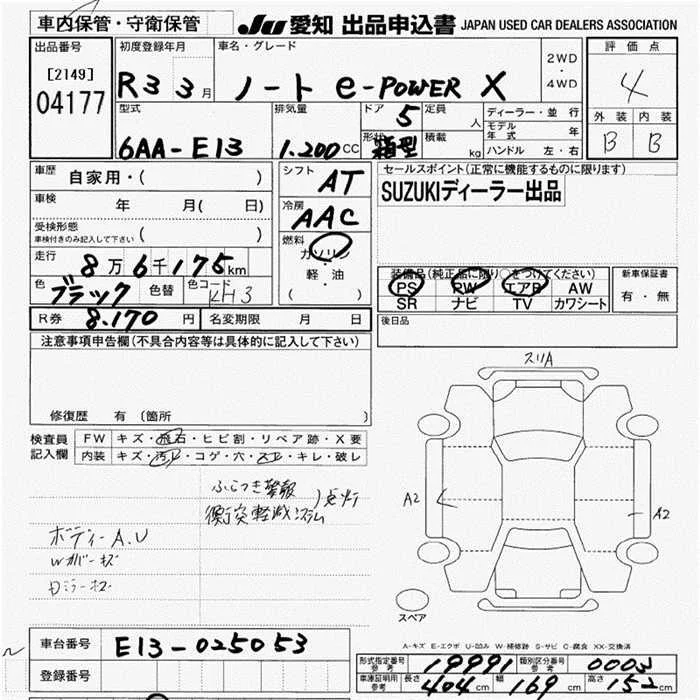 車内保管・守衛保管
JU 愛知 出品申込書 JAPAN USED CAR DEALERS ASSOCIATION
出品番号
[2149]
04177
初度登録年月
R3 3月
車名・グレード
ノート e-POWER X
2WD
・
4WD
評価点
4
外装 内装
B B
型式
6AA-E13
排気量
1.200cc
ドア 5
定員 人
形状 箱型
積載 kg
ディーラー・並行
モデル年式 年
ハンドル 左・右
車歴 自家用・( )
車検 年 月( 日)
受検形態
車検付きのみ記入して下さい ( )
走行
8万6千175km
色 ブラック
色替
色コード KH3
シフト AT
冷房 AAC
燃料
ガソリン
軽・油
( )
セールスポイント(正常に機能するものに限ります)
SUZUKIディーラー出品
装備品(純正品に限り○をつけてください)
PS PW エアB AW
SR ナビ TV カワシート
新車保証書
有・無
R券 8.170円
名変期限 月 日
後日品
注意事項申告欄(不具合内容等は具体的に記入して下さい)
修復歴 有 (箇所 )
検査員記入欄
FW キズ・飛石・ヒビ割・リペア跡・X要
内装 キズ・汚レ・コゲ・穴・スレ・キレ・破レ
ふらつき警報
衝突軽減システム
)点灯
ボディーA.U
Wカバーキズ
Dミラーキズ
スリA
A2
A2
スペア
A-キズ E-エクボ U-凹み W-補修跡 S-サビ C-腐食 XX-交換済
車台番号 E13-025053
登録番号
形式指定番号 参考 19991
類別区分番号 参考 0003
車庫証明用 参考 長さ 404cm 幅 169cm 高さ 152cm